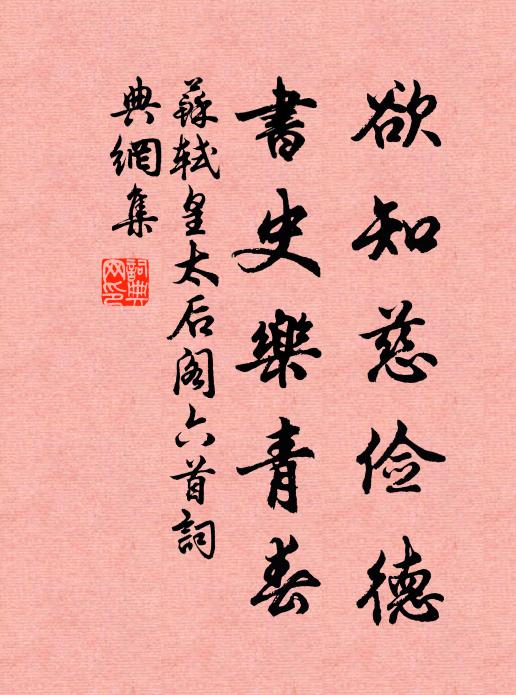 欲知慈俭德
書史樂青春
蘇軾皇太后阁六首詞
典網集
詞典
网印